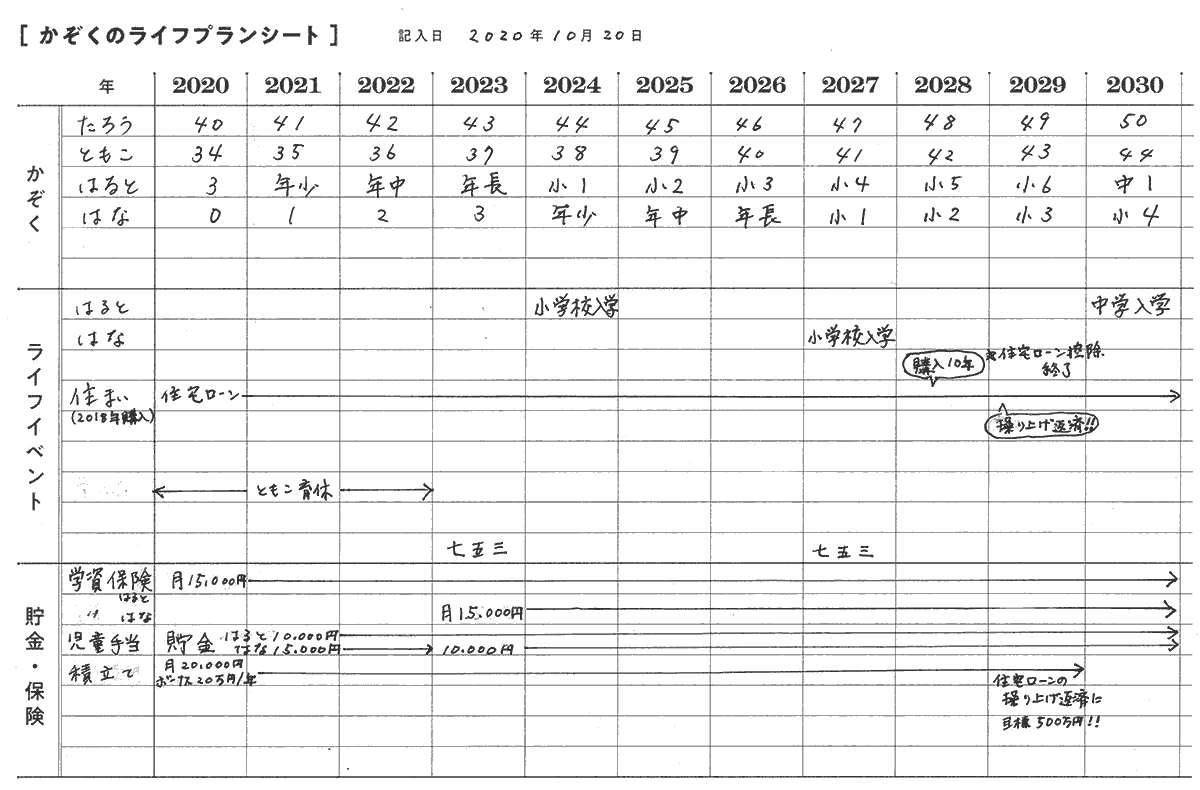 [ かぞくのライフプランシート ] 記入日 2020年10月20日
年 2020 2021 2022 2023 2024 2025 2026 2027 2028 2029 2030
かぞく
たろう 40 41 42 43 44 45 46 47 48 49 50
ともこ 34 35 36 37 38 39 40 41 42 43 44
はると 3 年少 年中 年長 小1 小2 小3 小4 小5 小6 中1
はな 0 1 2 3 年少 年中 年長 小1 小2 小3 小4
ライフイベント
はると 小学校入学 中学入学
はな 小学校入学
購入10年 ※住宅ローン控除
終了
住まい 住宅ローン
(2018年購入)
繰り上げ返済!!
ともこ育休
七五三 七五三
貯金・保険
学資保険 月15,000円
はると
〃 はな 月15,000円
児童手当 貯金 はると10,000円
はな15,000円 10,000円
積立て 月20,000円
ボーナス20万円/年
住宅ローンの
繰り上げ返済に
目標500万円!!